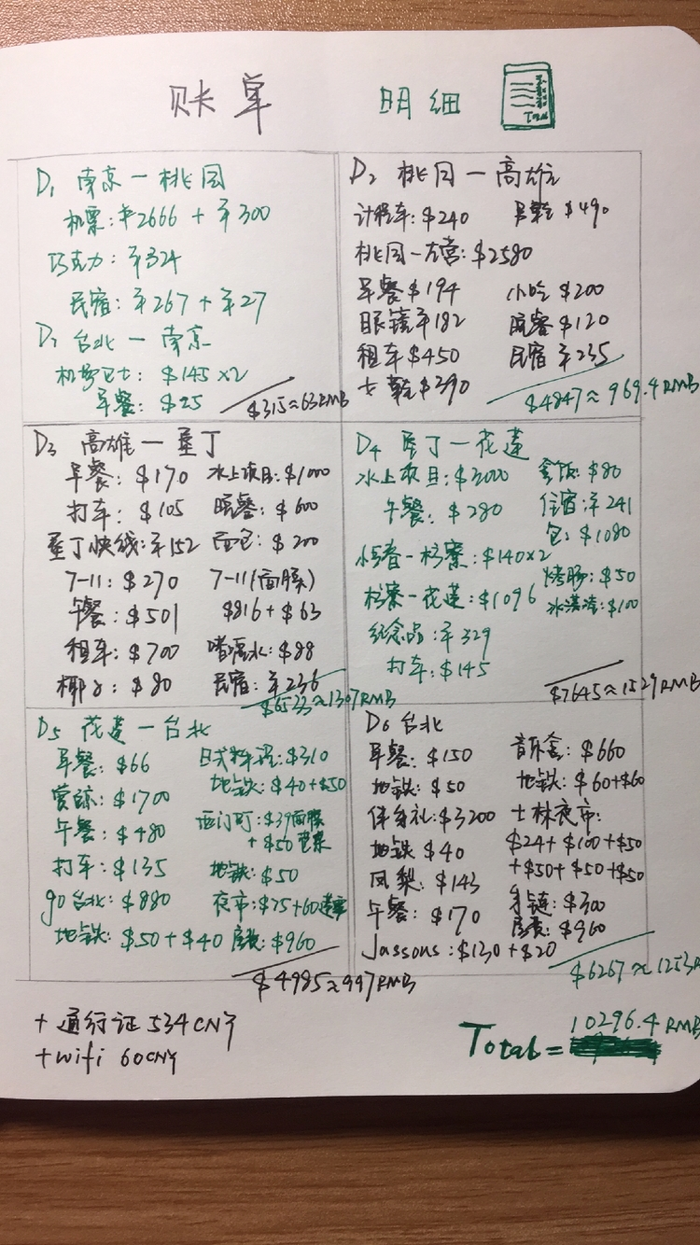 账单 明细
D1 南京一桃园
机票:¥2666 + ¥300
巧克力: ¥324
民宿: ¥267 + ¥27
D7 台北一南京
机场巴士: $145×2
早餐: $25
$315≈63RMB
D2 桃园一高雄
计程车: $240 $490
桃园一左营: $2580
早餐 $194 小吃 $200
眼镜 ¥182 晚餐 $120
租车 $450 民宿 ¥235
$390
$4847≈969.4RMB
D3 高雄一垦丁
早餐: $170 水上项目: $1000
打车: $105 晚餐: $600
垦丁快线: ¥152 面包: $200
7-11: $270 7-11(面膜)
午餐: $501 $816 + $63
租车: $700 $88
椰子: $80 民宿: ¥236
$6533≈1307RMB
D4 垦丁一花莲
水上项目: $3000 $80
午餐: $280 住宿: ¥241
包: $1080
一枋寮: $140×2
烤肠: $50
枋寮一花莲: $1096 冰淇淋: $100
纪念品: ¥329
打车: $145
$7645≈1529RMB
D5 花莲一台北
早餐: $66 日式料理: $310
地铁: $40+$50
赏鲸: $1700
西门町: $39面膜
午餐: $480 + $50芒果
打车: $135 地铁: $50
go台北: $880 夜市: $75+60
地铁: $50 + $40 房费: $960
$4985≈997RMB
D6 台北
早餐: $150 音乐盒: $660
地铁: $50 地铁: $60+$60
伴身礼: $3200 士林夜市:
地铁 $40 $24 + $100 + $50
凤梨: $143 + $50 + $50 + $50
午餐: $170 手链: $300
房费: $960
Jassons: $130 + $20
$6267≈1253R
+ 通行证 534CNY
+ wifi 60CNY
Total = 10296.4 RMB